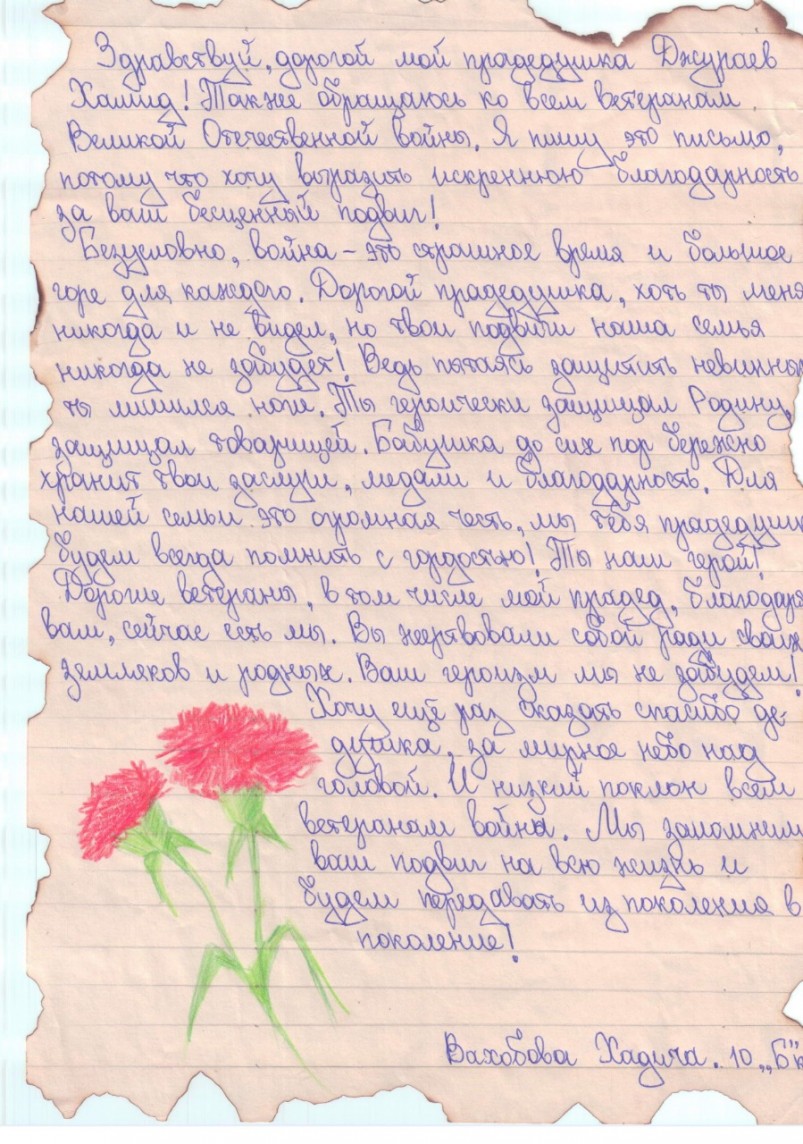 Здравствуй, дорогой мой прадедушка Джураев
Хамид! Также обращаюсь ко всем ветеранам
Великой Отечественной войны. Я пишу это письмо,
потому что хочу выразить искреннюю благодарность
за ваш бесценный подвиг!
Безусловно, война – это страшное время и большое
горе для каждого. Дорогой прадедушка, хоть ты меня
никогда и не видел, но твои подвиги наша семья
никогда не забудет! Ведь пытаясь защитить невинных
ты лишился ноги. Ты героически защищал Родину,
защищал товарищей. Бабушка до сих пор бережно
хранит твои заслуги, медали и благодарность. Для
нашей семьи это огромная честь, мы тебя прадедушка
будем всегда помнить с гордостью! Ты наш герой!
Дорогие ветераны, в том числе мой прадед, благодаря
вам, сейчас есть мы. Вы жертвовали собой ради своих
земляков и родных. Ваш героизм мы не забудем!
Хочу ещё раз сказать спасибо де-
душка, за мирное небо над
головой. И низкий поклон всем
ветеранам войны. Мы запомним
ваш подвиг на всю жизнь и
будем передавать из поколения в
поколение!
Вахобова Хадича. 10 „Б"к